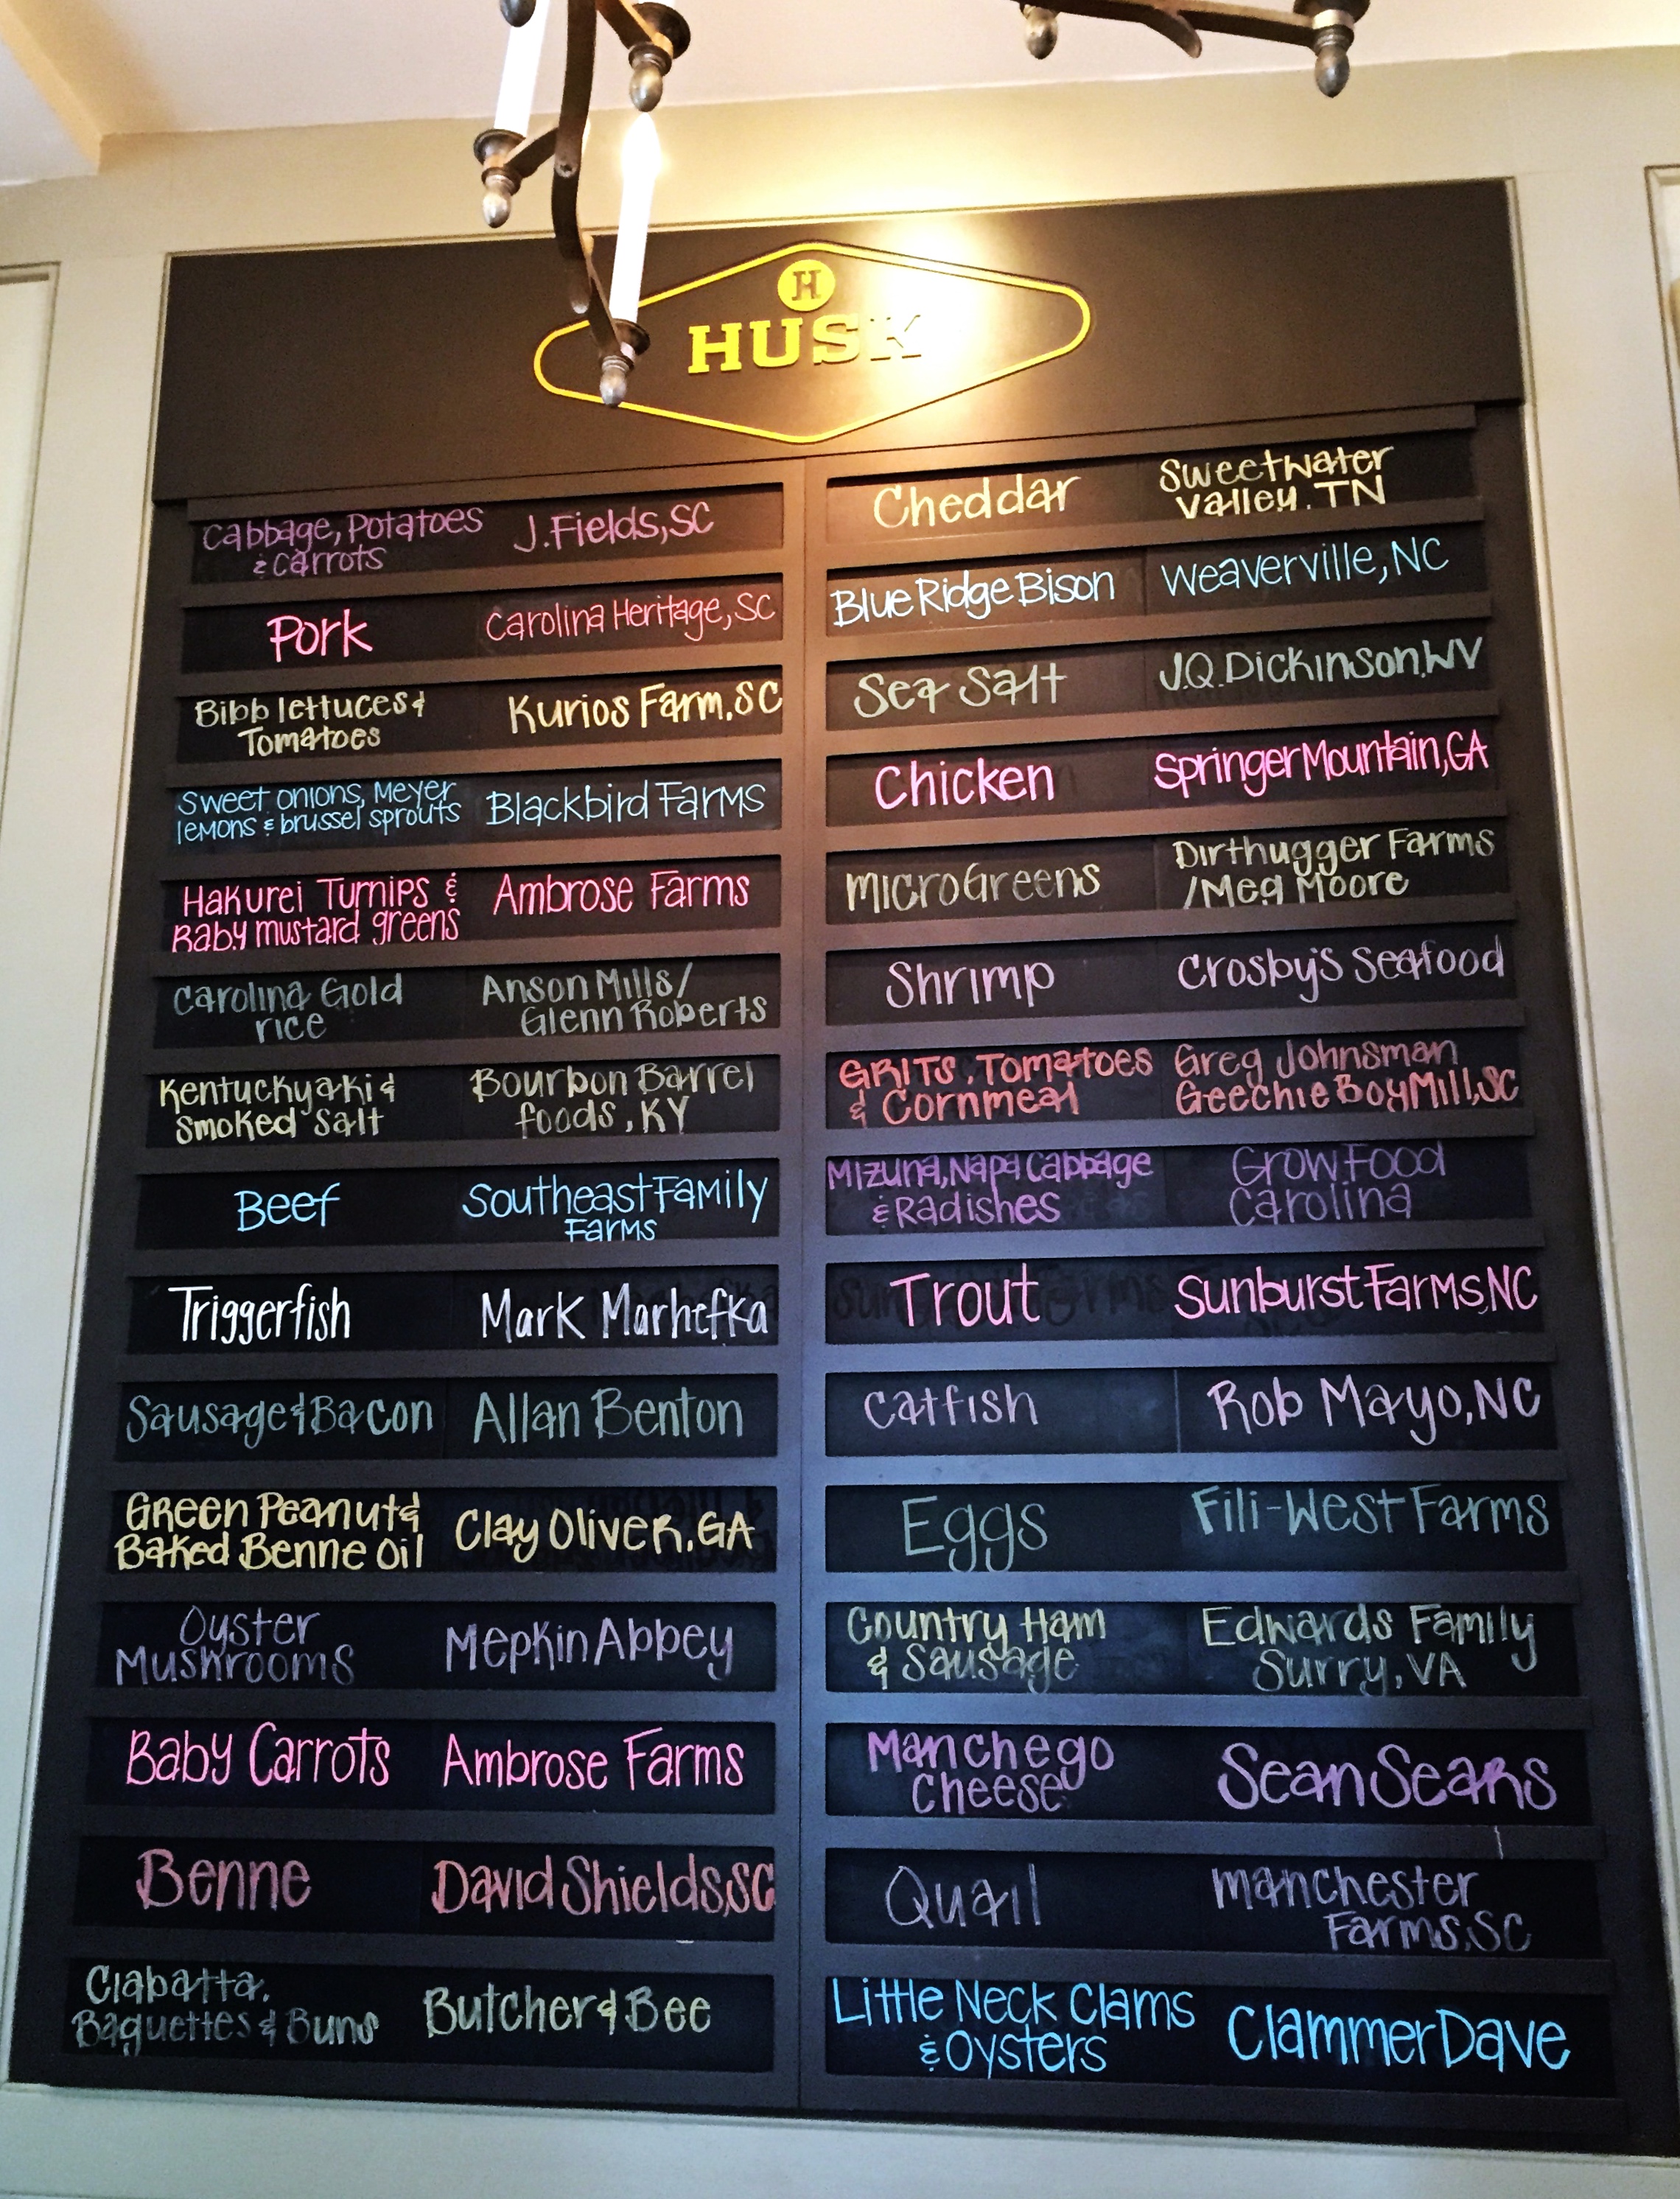 H
HUSK
Cabbage, Potatoes
& Carrots
J. Fields, SC
Pork
Carolina Heritage, SC
Bibb lettuces &
Tomatoes
Kurios Farm, SC
Sweet onions, Meyer
lemons & brussel sprouts
Blackbird Farms
Hakurei Turnips &
Baby mustard greens
Ambrose Farms
Carolina Gold
rice
Anson Mills/
Glenn Roberts
Kentuckyaki &
Smoked Salt
Bourbon Barrel
foods, KY
Beef
Southeast Family
Farms
Triggerfish
Mark Marhefka
Sausage & Bacon
Allan Benton
Green Peanut &
Baked Benne Oil
Clay Oliver, GA
Oyster
Mushrooms
Mepkin Abbey
Baby Carrots
Ambrose Farms
Benne
David Shields, SC
Ciabatta,
Baguettes & Buns
Butcher & Bee
Cheddar
Sweetwater
Valley, TN
Blue Ridge Bison
Weaverville, NC
Sea Salt
J.Q. Dickinson, WV
Chicken
Springer Mountain, GA
MicroGreens
Dirthugger Farms
/Meg Moore
Shrimp
Crosby's Seafood
GRITS, Tomatoes
& Cornmeal
Greg Johnsman
Geechie Boy Mill, SC
Mizuna, Napa Cabbage
& Radishes
GrowFood
Carolina
Trout
Sunburst Farms, NC
Catfish
Rob Mayo, NC
Eggs
Fili-West Farms
Country Ham
& Sausage
Edwards Family
Surry, VA
Manchego
Cheese
Sean Sears
Quail
Manchester
Farms, SC
Little Neck Clams
& Oysters
Clammer Dave